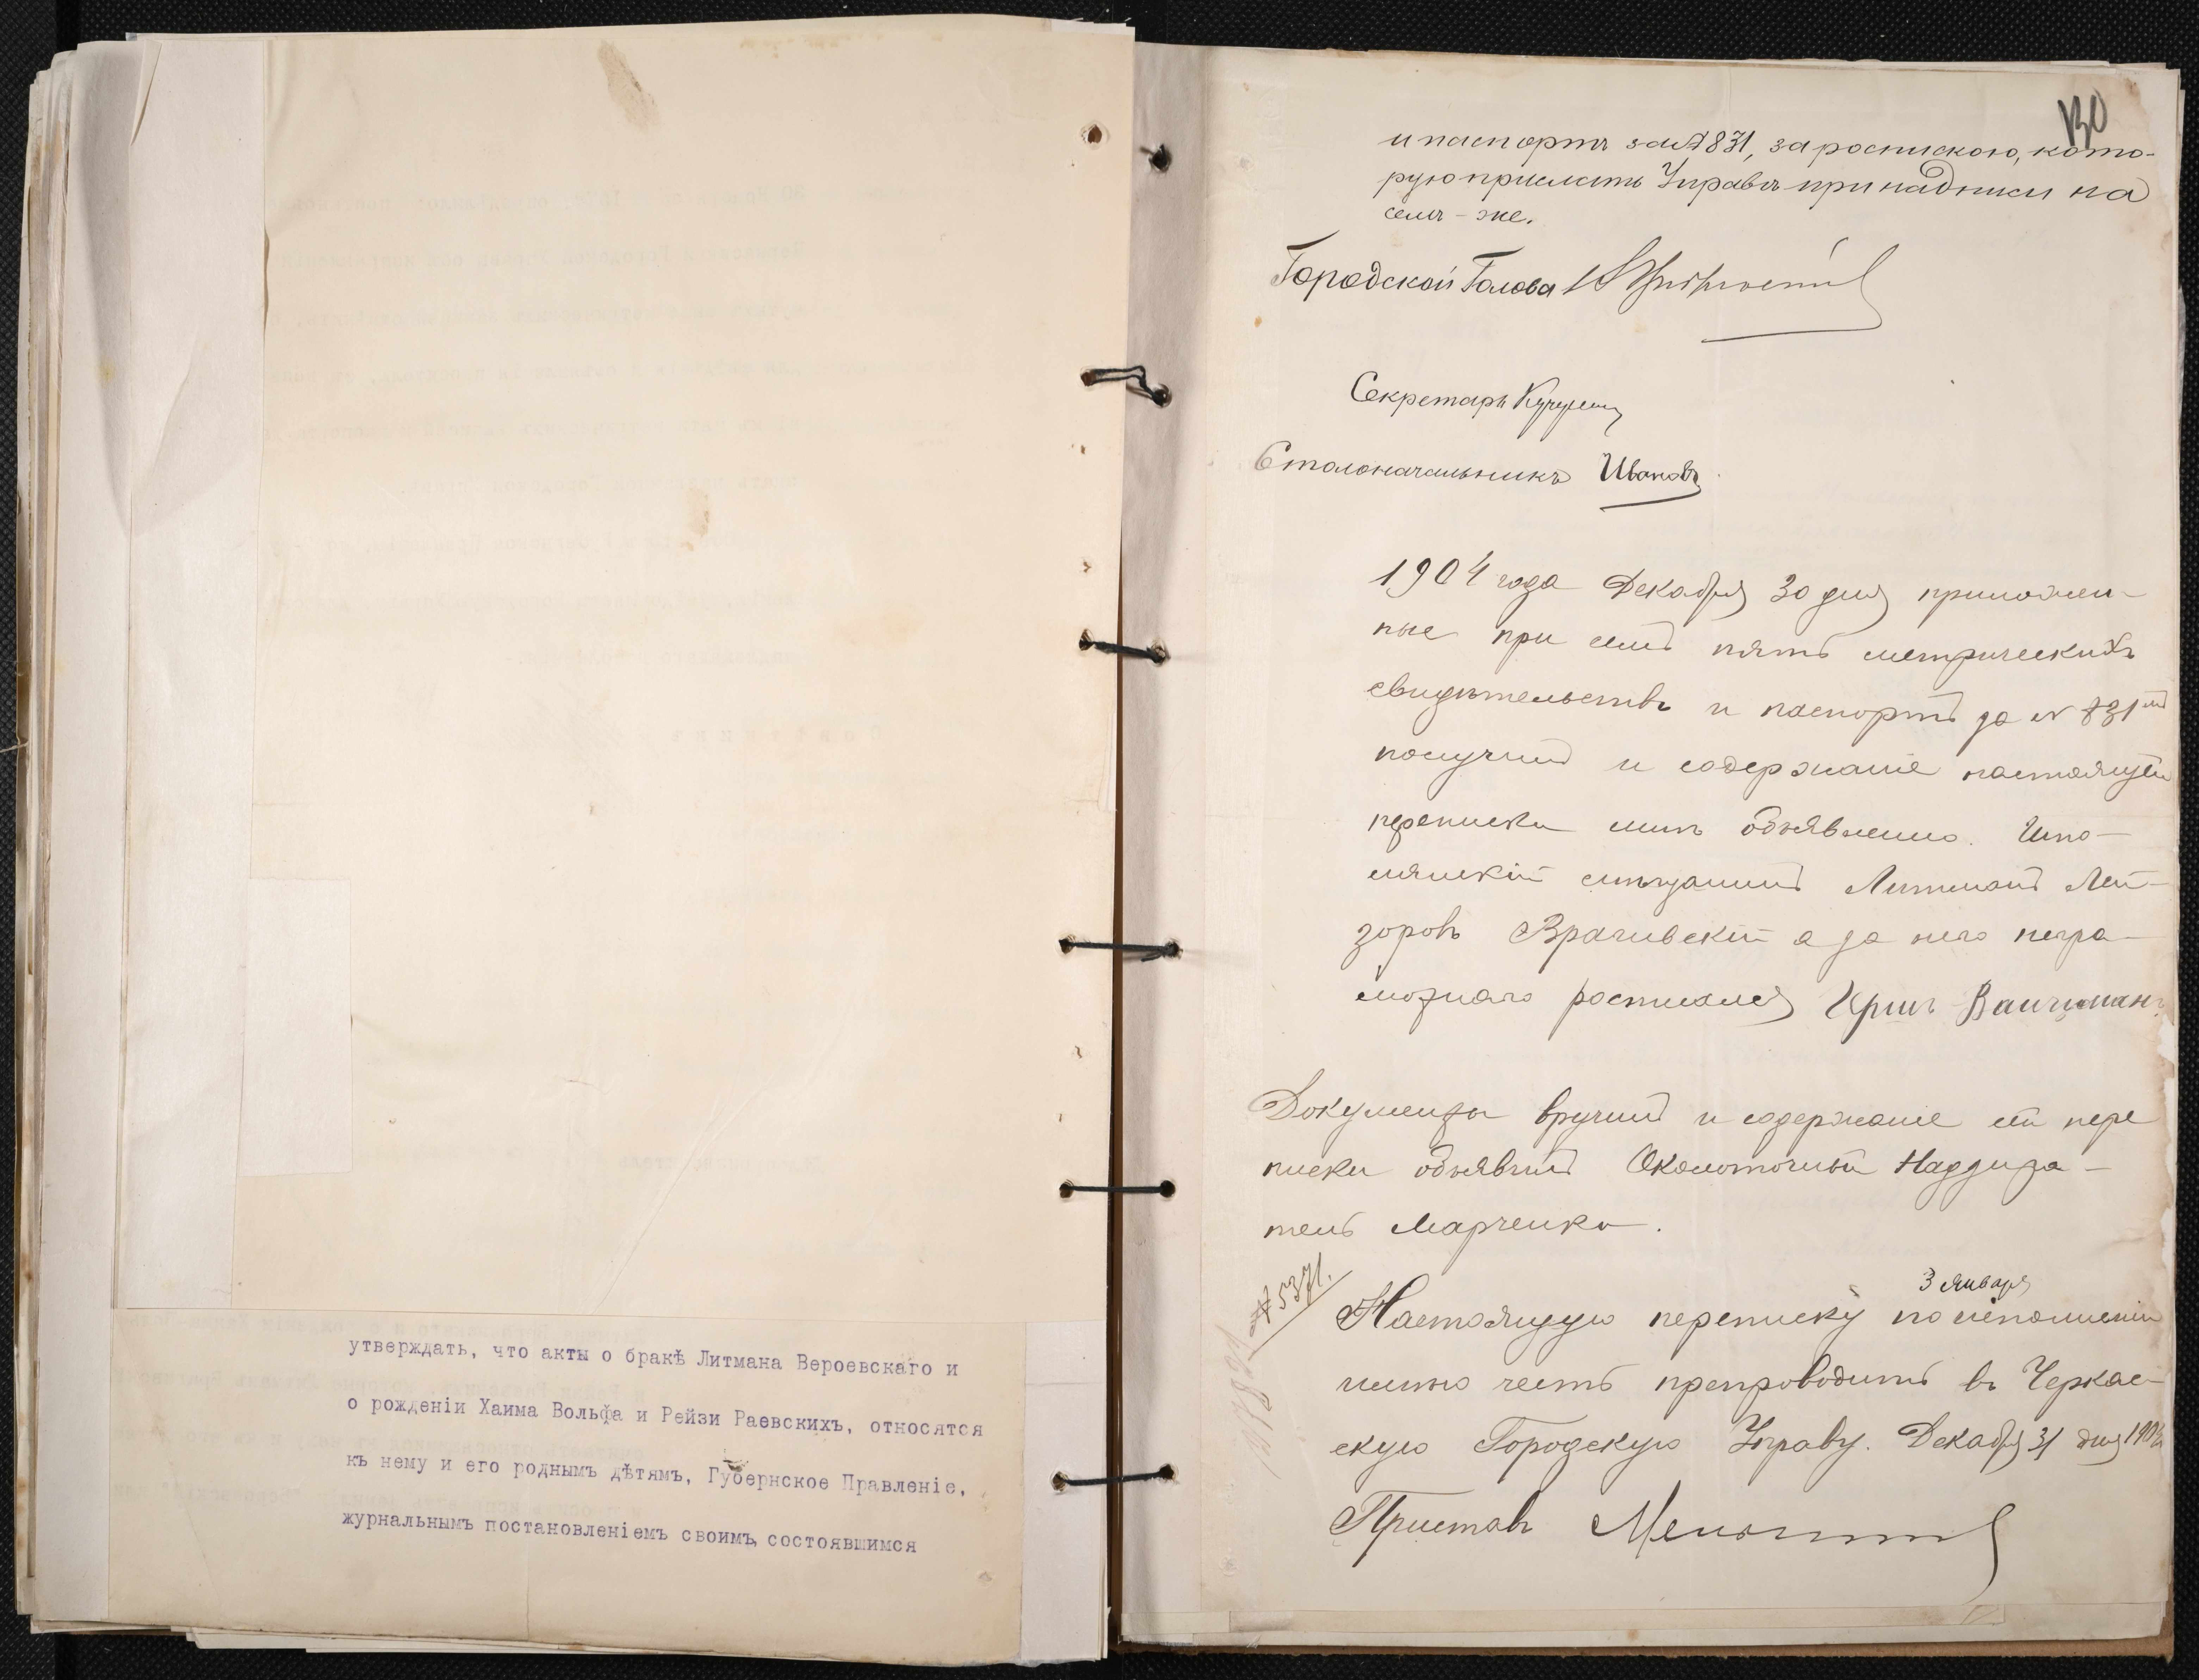 утверждать, что акты о бракѣ Литмана Вероевскаго и
о рожденіи Хаима Вольфа и Рейзи Раевскихъ, относятся
къ нему и его роднымъ дѣтямъ, Губернское Правленіе,
журнальнымъ постановленіемъ своимъ, состоявшимся
130
и паспортъ за № 831, за роспискою, кото-
рую прислать Управѣ при надписи на
семъ-же.
Городской Голова
Секретарь
Столоначальникъ Ивановъ
1904 года Декабря 30 дня приложен-
ные при семъ пять метрическихъ
свидѣтельствъ и паспортъ за № 831мъ
получилъ и содержаніе настоящей
переписки мнѣ объявлено.
мѣщанинъ Литманъ Лей-
зоровъ Врачевскій а за него негра-
мотнаго росписался Ицикъ Вайнманъ
Документы вручилъ и содержаніе сей пере
писки объявилъ Околоточный Надзира-
тель Марченко.
№ 5371.
3 Января
Настоящую переписку по исполненіи
имѣю честь препроводить въ Черкас-
скую Городскую Управу. Декабря 31 дня 1904
Приставъ